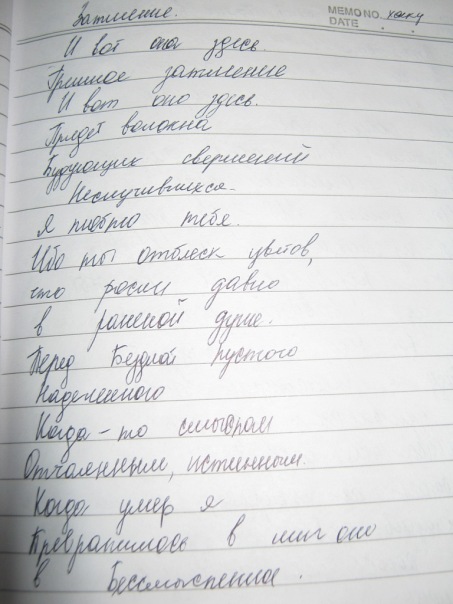 MEMO NO. хокку
DATE . .
Затмение.
И вот она здесь.
Грешное затмение
И вот оно здесь.
Прядёт волокна
Будующих свершений
Неслучившихся.
Я люблю тебя.
Ибо ты отблеск цветов,
что росли давно
в раненой душе.
Перед Бездной пустого
Наделенного
Когда-то смыслом
Отчаянным, истинным.
Когда умер я
Превратилось в миг оно
в Бессмысленное.